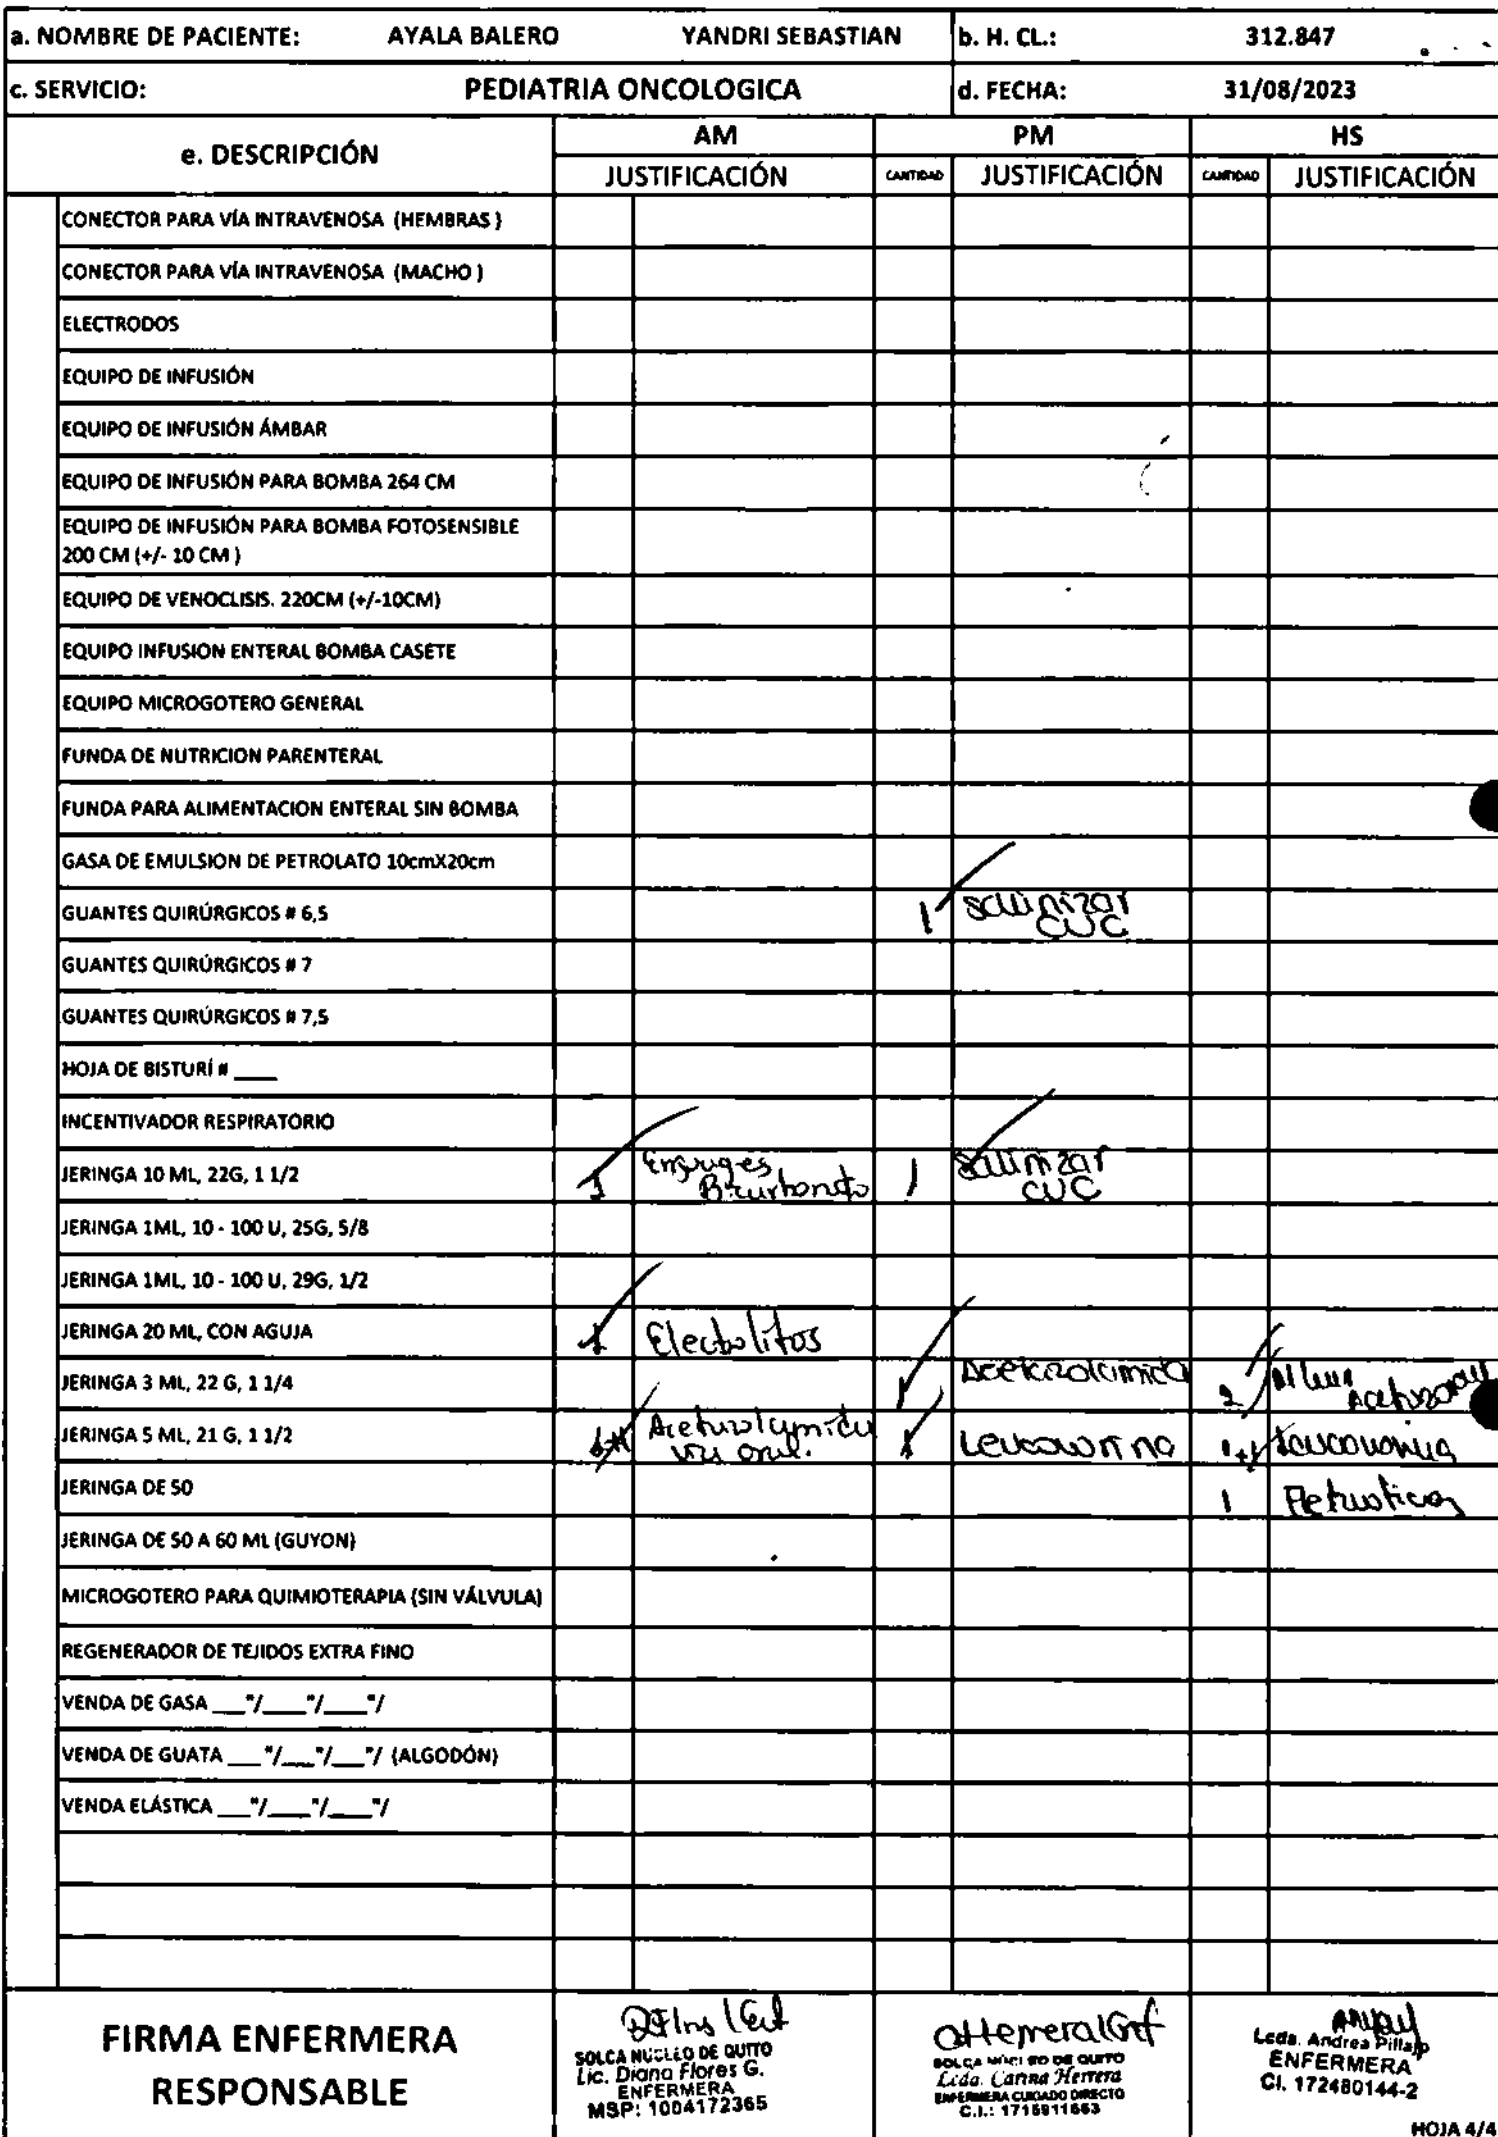 a. NOMBRE DE PACIENTE: AYALA BALERO YANDRI SEBASTIAN b. H. CL.: 312.847
c. SERVICIO: PEDIATRIA ONCOLOGICA d. FECHA: 31/08/2023
e. DESCRIPCIÓN AM PM HS
JUSTIFICACIÓN CANTIDAD JUSTIFICACIÓN CANTIDAD JUSTIFICACIÓN
CONECTOR PARA VÍA INTRAVENOSA (HEMBRAS )
CONECTOR PARA VÍA INTRAVENOSA (MACHO )
ELECTRODOS
EQUIPO DE INFUSIÓN
EQUIPO DE INFUSIÓN ÁMBAR
EQUIPO DE INFUSIÓN PARA BOMBA 264 CM
EQUIPO DE INFUSIÓN PARA BOMBA FOTOSENSIBLE
200 CM (+/- 10 CM )
EQUIPO DE VENOCLISIS. 220CM (+/-10CM)
EQUIPO INFUSION ENTERAL BOMBA CASETE
EQUIPO MICROGOTERO GENERAL
FUNDA DE NUTRICION PARENTERAL
FUNDA PARA ALIMENTACION ENTERAL SIN BOMBA
GASA DE EMULSION DE PETROLATO 10cmX20cm
GUANTES QUIRÚRGICOS # 6,5 1 salinizar CVC
GUANTES QUIRÚRGICOS # 7
GUANTES QUIRÚRGICOS # 7,5
HOJA DE BISTURÍ # ____
INCENTIVADOR RESPIRATORIO
JERINGA 10 ML, 22G, 1 1/2 1 Enjuages Bicarbonato 1 salinizar CVC
JERINGA 1ML, 10 - 100 U, 25G, 5/8
JERINGA 1ML, 10 - 100 U, 29G, 1/2
JERINGA 20 ML, CON AGUJA 1 Electrolitos
JERINGA 3 ML, 22 G, 1 1/4 Acetazolamida 2
JERINGA 5 ML, 21 G, 1 1/2 Acetazolamida via oral. 1 Leucovorina
JERINGA DE 50 1
JERINGA DE 50 A 60 ML (GUYON)
MICROGOTERO PARA QUIMIOTERAPIA (SIN VÁLVULA)
REGENERADOR DE TEJIDOS EXTRA FINO
VENDA DE GASA ___"/____"/____"/
VENDA DE GUATA ___"/___"/___"/ (ALGODÓN)
VENDA ELÁSTICA ___"/____"/____"/
FIRMA ENFERMERA
RESPONSABLE
SOLCA NUCLEO DE QUITO
Lic. Diana Flores G.
ENFERMERA
MSP: 1004172365
SOLCA NUCLEO DE QUITO
Lcda. Carina Herrera
ENFERMERA CUIDADO DIRECTO
C.I.: 1715911553
Lcda. Andrea Pillajo
ENFERMERA
CI. 172480144-2
HOJA 4/4